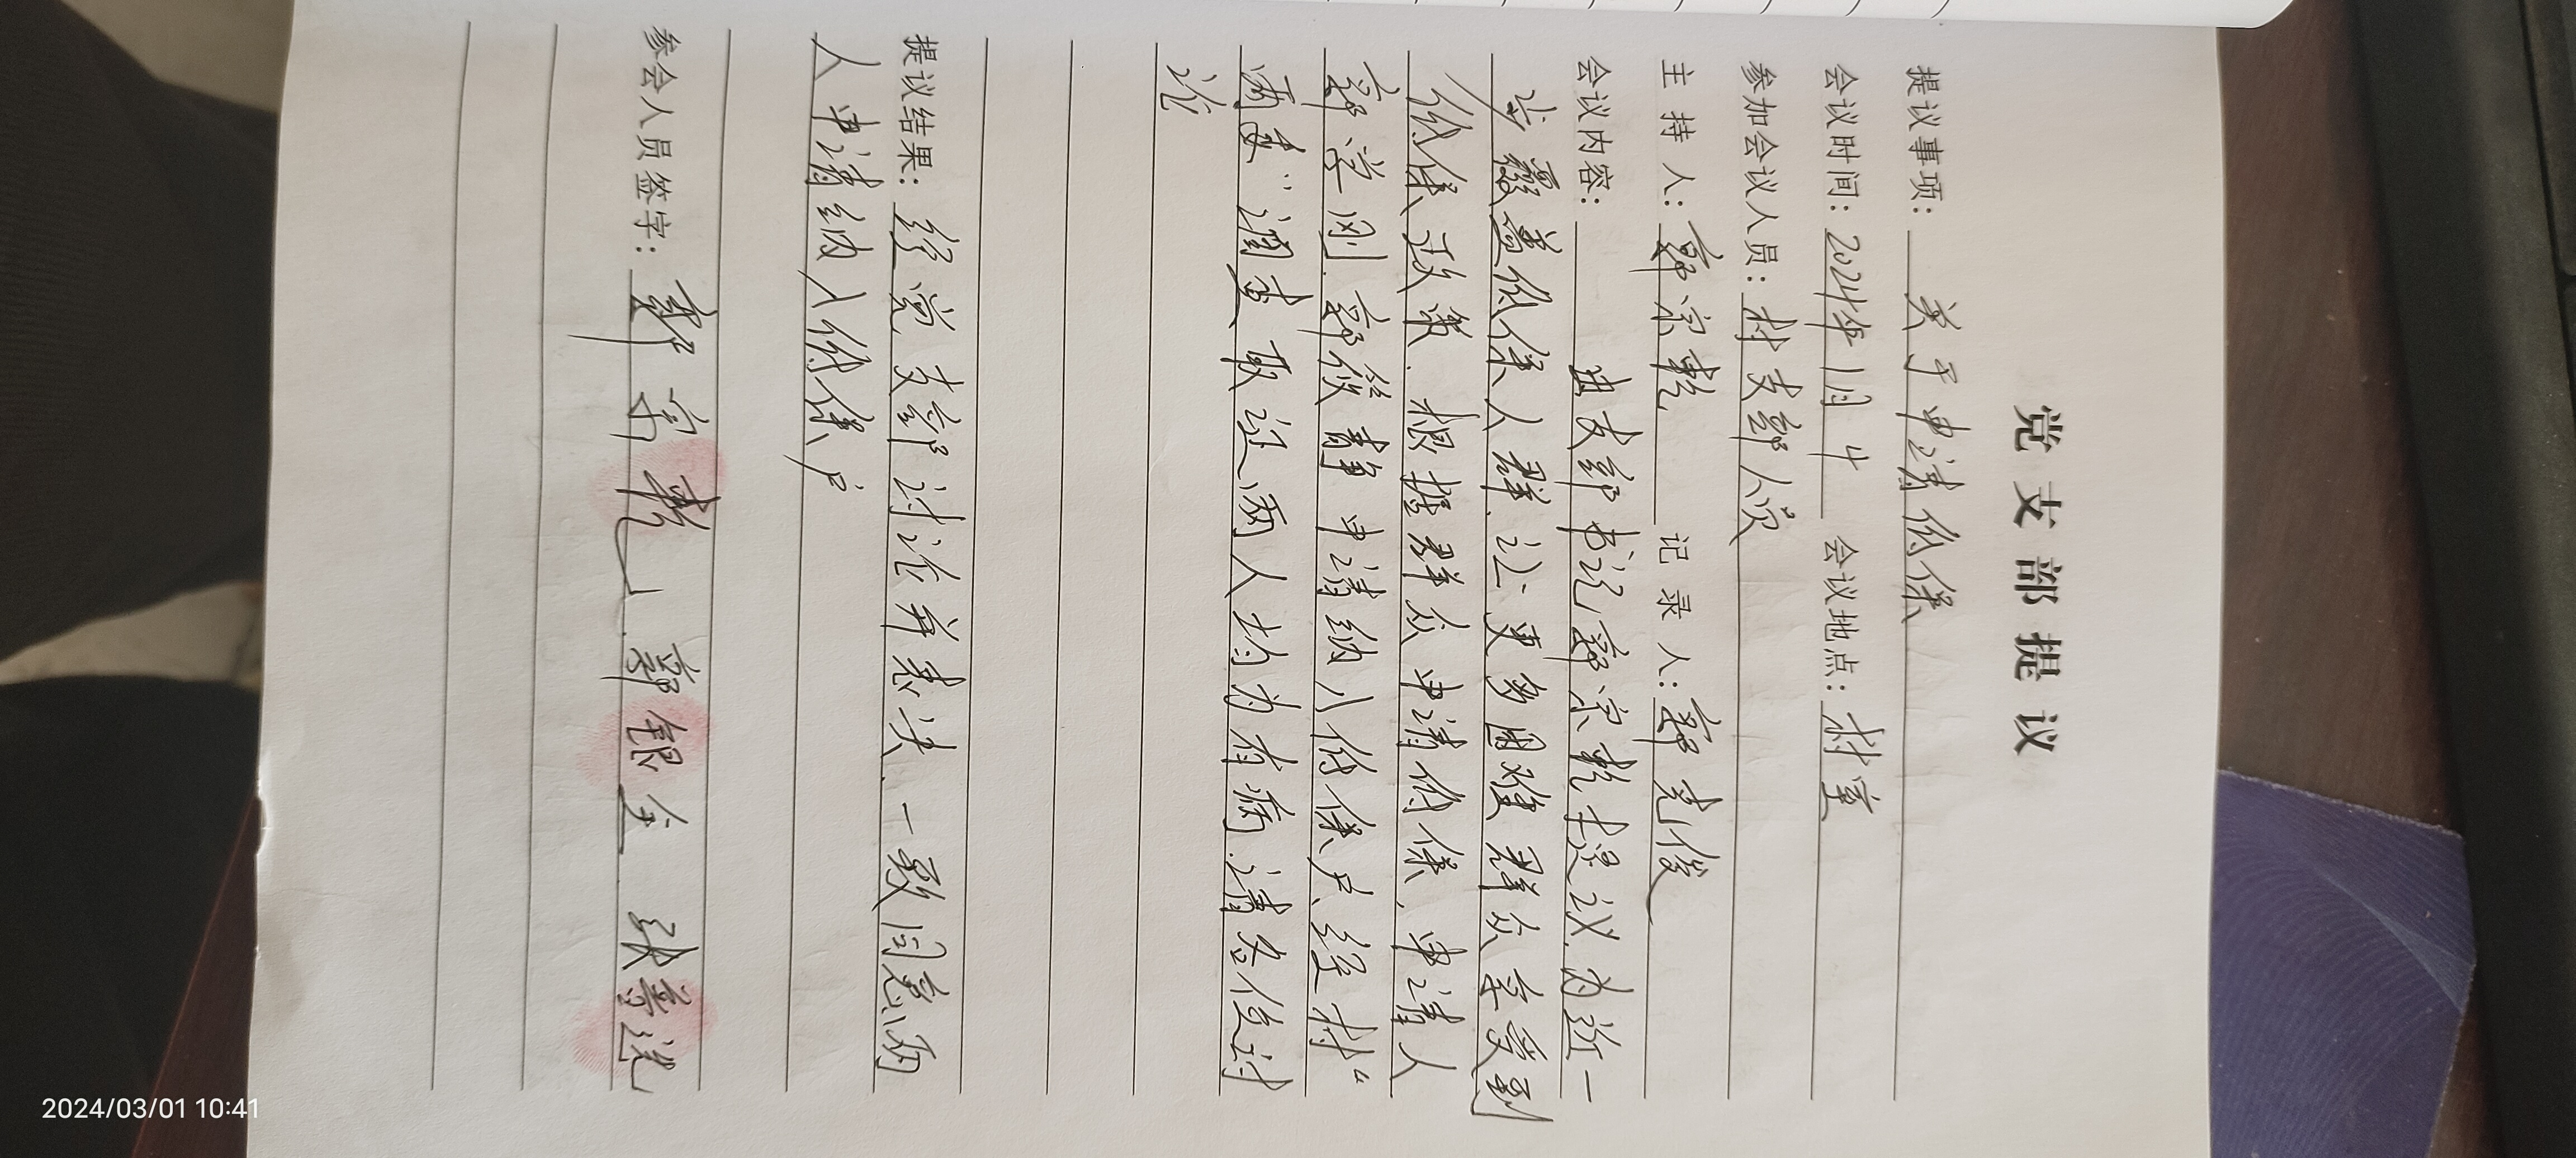 党支部提议
提议事项: 关于申请低保
会议时间: 2024年1月 会议地点: 村室
参加会议人员: 村支部人员
主 持 人: 郭宗乾 记 录 人: 郭克俊
会议内容: 由支部书记郭宗乾提议.为近一
步覆盖低保人群.让更多困难群众享受到
低保政策.根据群众申请低保,申请人
郭学刚.郭筱静申请纳入低保户.经村“
两委”调查取这两人均为有病.请各位讨
论
提议结果: 经党支部讨论并表决.一致同意两
人申请纳入低保户
参会人员签字: 郭宗乾 郭银全 张
2024/03/01 10:41